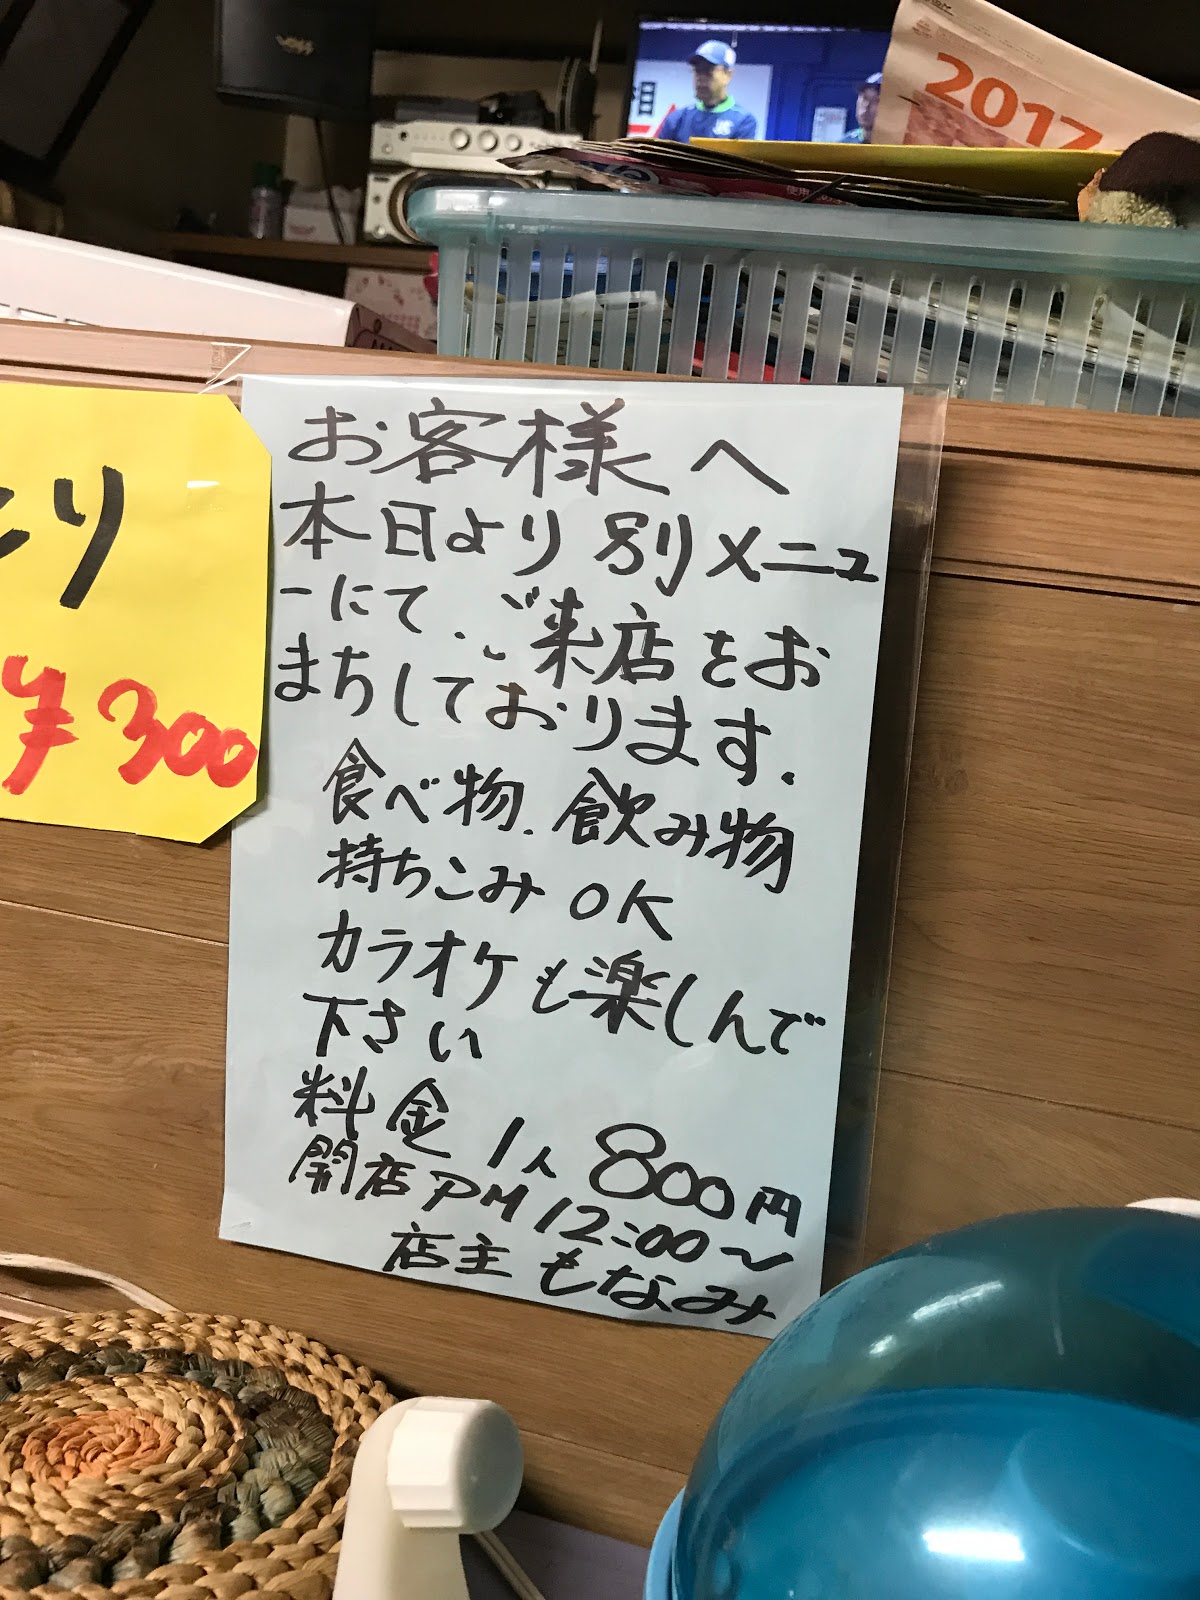 2017
使用
お客様へ
本日より別メニュ
ーにて、ご来店をお
まちしております.
食べ物、飲み物
持ちこみOK
カラオケも楽しんで
下さい
料金 1人 800円
開店 PM 12:00〜
店主 もなみ
り
¥300